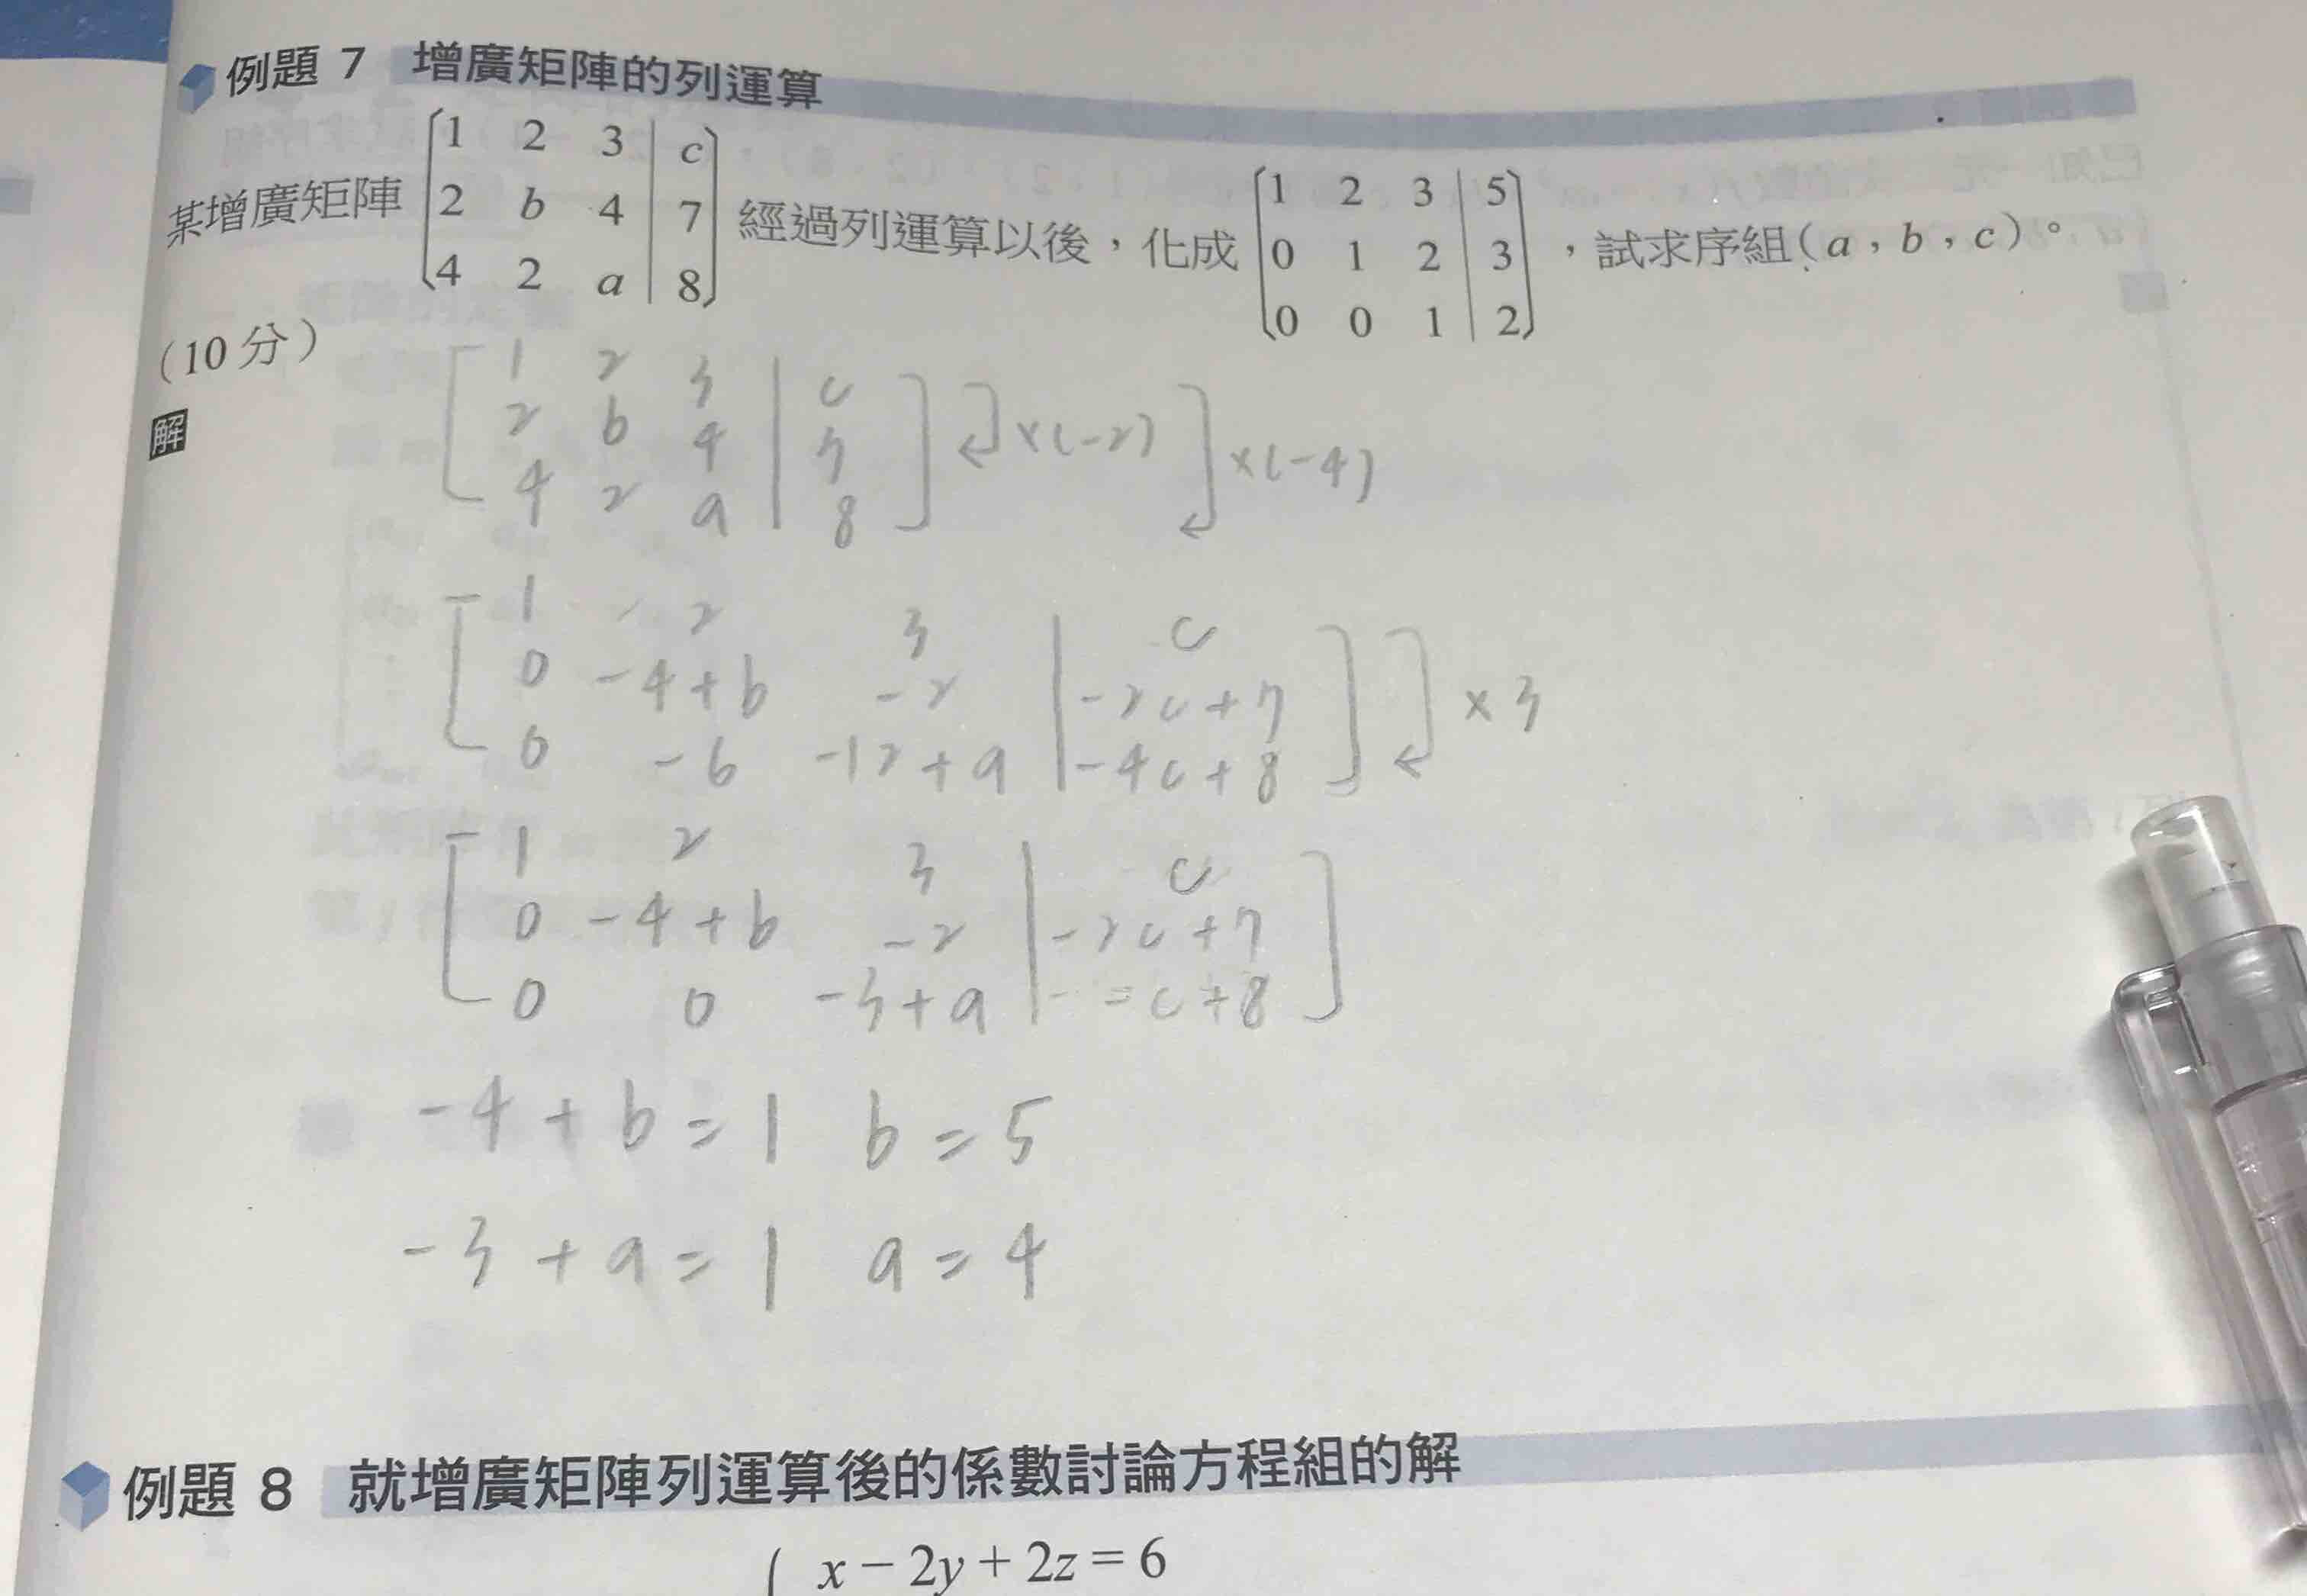 例題 7 增廣矩陣的列運算
某增廣矩陣 [1 2 3 | c; 2 b 4 | 7; 4 2 a | 8] 經過列運算以後，化成 [1 2 3 | 5; 0 1 2 | 3; 0 0 1 | 2]，試求序組(a，b，c)。
(10分)
解
1 2 3 | c
2 b 4 | 7 ×(-2)
4 2 a | 8 ×(-4)
1 2 3 | c
0 -4+b -2 | -2c+7 ×3
0 -6 -12+a | -4c+8
1 2 3 | c
0 -4+b -2 | -2c+7
0 0 -3+a | c+8
-4+b=1 b=5
-3+a=1 a=4
例題 8 就增廣矩陣列運算後的係數討論方程組的解
x-2y+2z=6